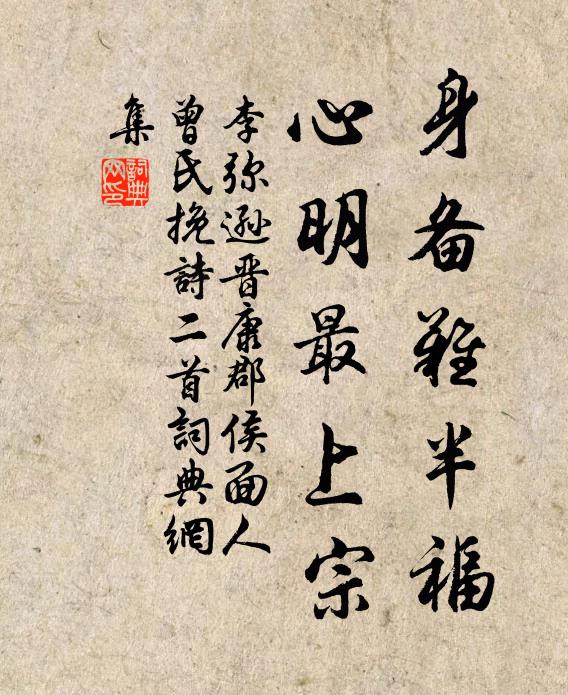 身备難半福
心明最上宗
李弥遜晋康郡侯面人
曾氏挽詩二首詞典網
集
詞典
网印